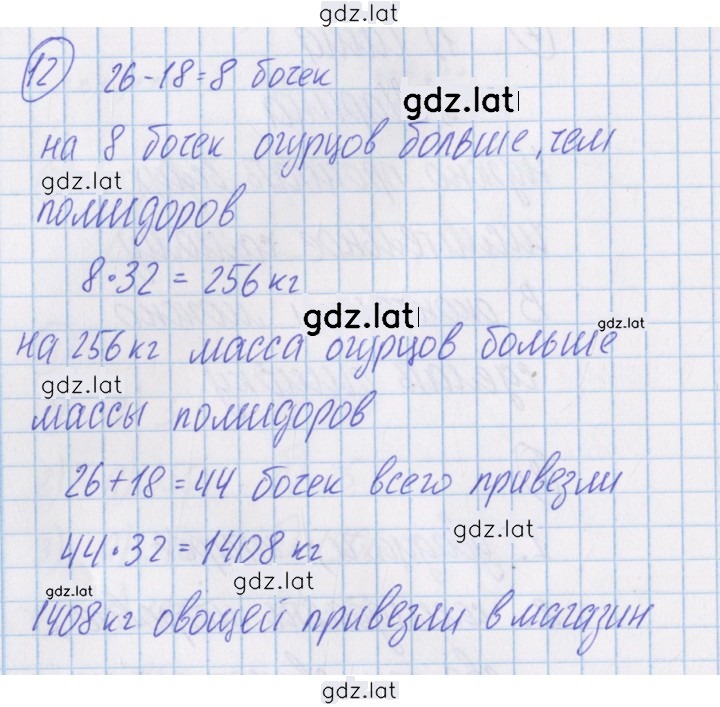 gdz.lat
12 26-18=8 бочек
gdz.lat
на 8 бочек огурцов больше, чем
gdz.lat
помидоров
8·32 = 256 кг
gdz.lat
gdz.lat
на 256 кг масса огурцов больше
gdz.lat
массы помидоров
26+18=44 бочек всего привезли
gdz.lat
44·32=1408 кг
gdz.lat
gdz.lat
1408 кг овощей привезли в магазин
gdz.lat